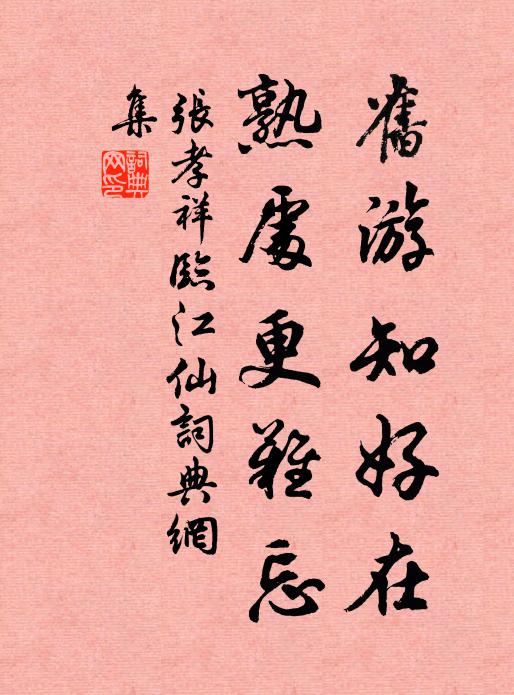 舊游知好在
熟處更難忘
張孝祥臨江仙詞典網
集
詞典网印